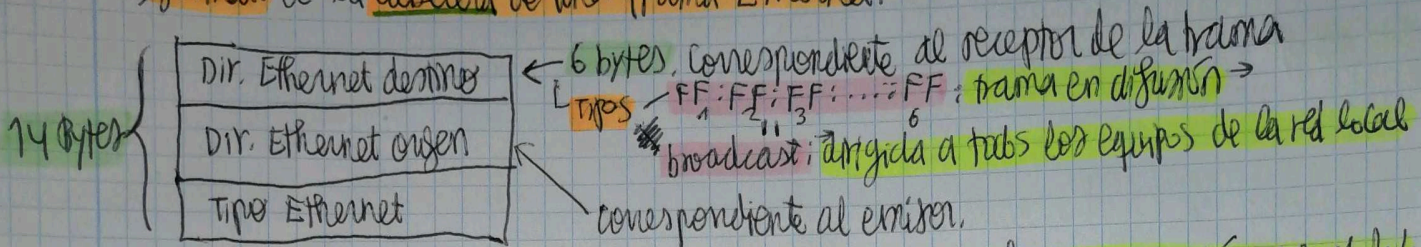 de una trama Ethernet.
14 Bytes
Dir. Ethernet destino
Dir. Ethernet origen
Tipo Ethernet
← 6 bytes. Correspondiente al receptor de la trama
Tipos FF:FF:FF:.....:FF: trama en difusión →
1 2 3 6
"
broadcast: dirigida a todos los equipos de la red local
correspondiente al emisor.